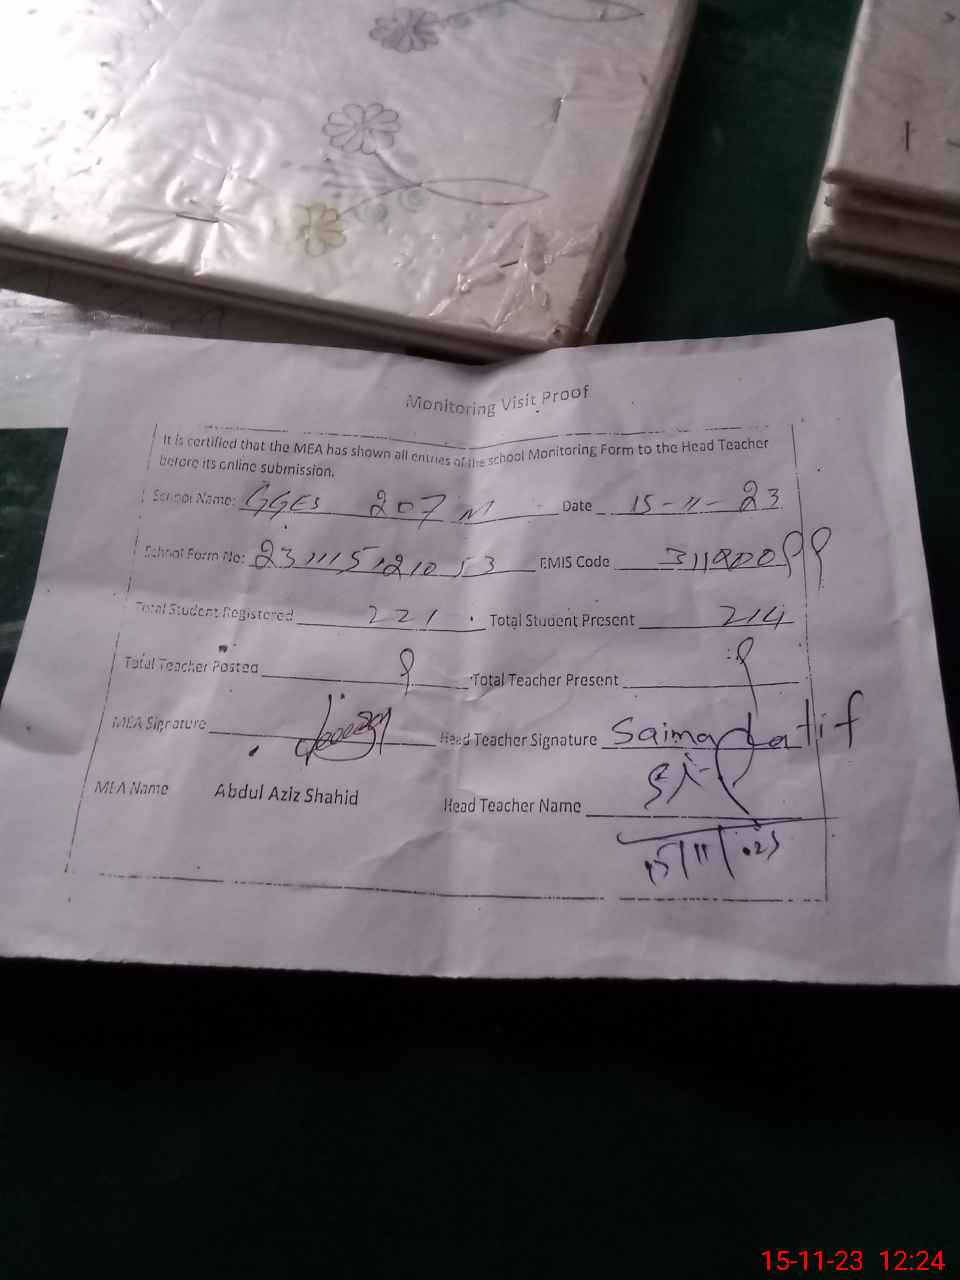 Monitoring Visit Proof
It is certified that the MEA has shown all entries of the school Monitoring Form to the Head Teacher
before its online submission.
School Name: GGES 207 M Date 15-11-23
School Form No: EMIS Code
Total Student Registered 221 Total Student Present 214
Total Teacher Posted 9 Total Teacher Present 9
MEA Signature Head Teacher Signature Saima Latif
MEA Name Abdul Aziz Shahid Head Teacher Name
15/11/.23
15-11-23 12:24